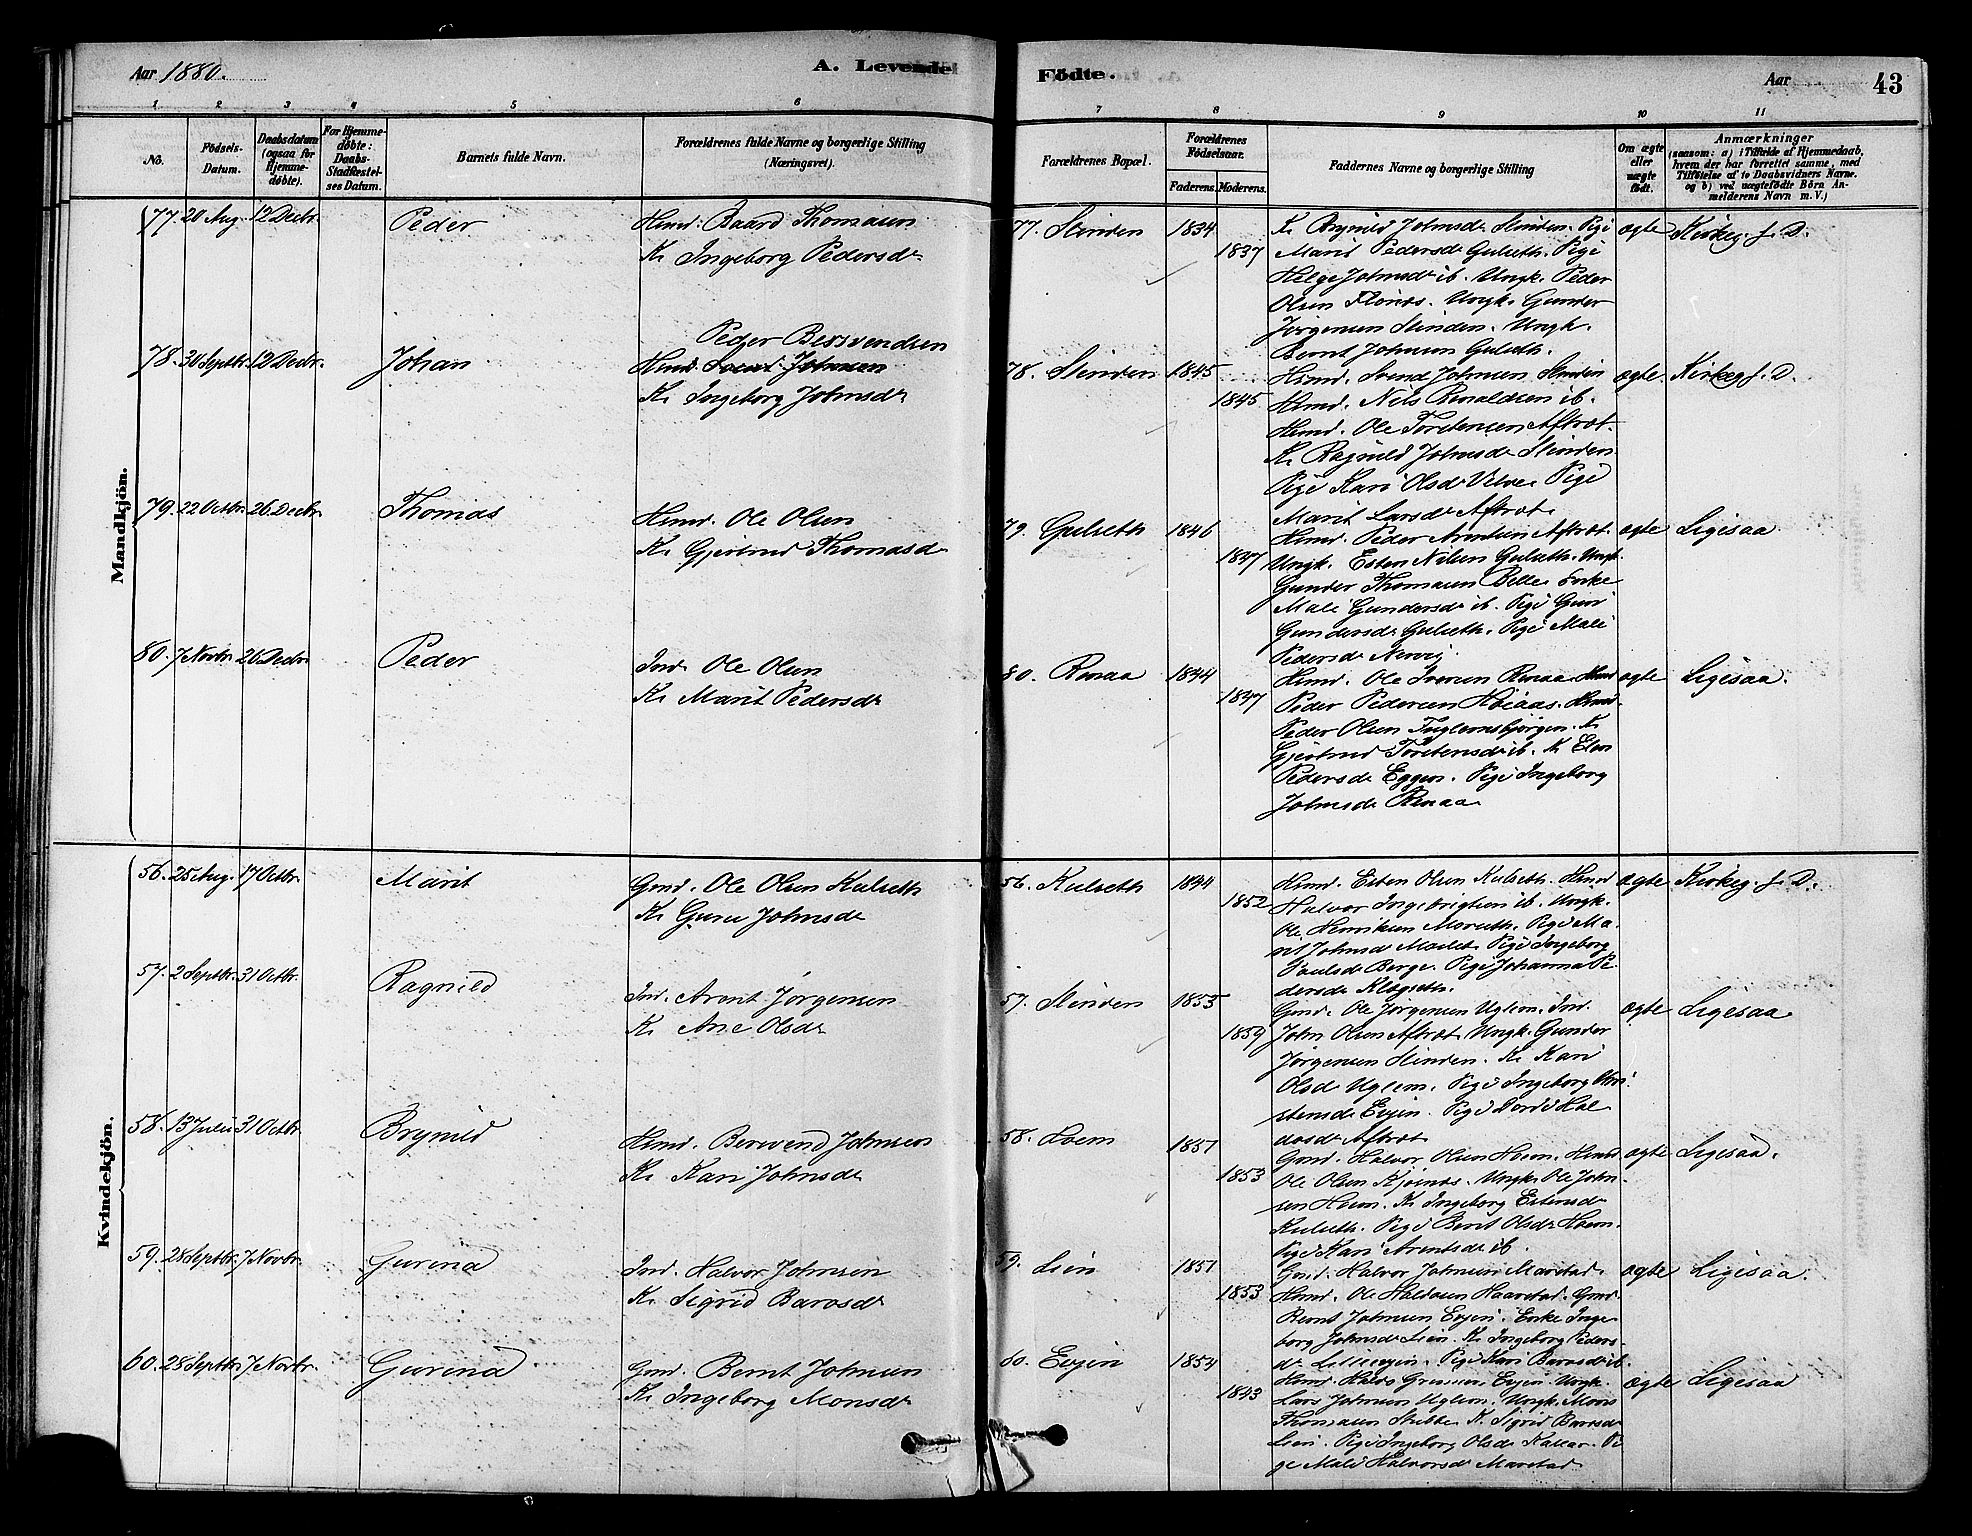 Aar 1880.
A. Levende
Fødte.
Aar
43
1 2 3 4 5 6
7 8 9 10 11
No.
Födsels-Datum.
Daabsdatum (ogsaa for Hjemme-döbte).
For Hjemme-döbte: Daabs-Stadfæstel-ses Datum.
Barnets fulde Navn.
Forældrenes fulde Navne og borgerlige Stilling (Næringsvei).
Forældrenes Bopæl.
Forældrenes Födselsaar.
Faderens. Moderens.
Faddernes Navne og borgerlige Stilling
Om ægte eller uægte födt.
Anmærkninger
(saasom: a) i Tilfælde af Hjemmedaab,
hvem der har forrettet samme, med
Tilföielse af to Daabsvidners Navne.
og b) ved uægtefödte Börn An-
melderens Navn m. V.)
Mandkjön.
77. 20 Aug. 12 Decbr. Peder
Hmd. Baard Thomasen
K. Ingeborg Pedersdr
77. Slinden 1834
1837
K. Brynild Johnsdr Slinden. Pige
Marit Pedersdr Gulseth. Pige
Helge Johnsdr ib. Ungk. Peder
Olsen Flønes. Ungk. Gunder
Jørgensen Slinden. Ungk.
Bernt Johnsen Gulseth.
ægte Kirkeg. f. D.
78. 30 Septbr. 12 Decbr. Johan
Peder Bersvendsen
Hmd. Svend Johnsen
K. Ingeborg Johnsdr
78. Slinden 1845
1845
Hsmd. Svend Johnsen Slinden
Hsmd. Nils Rinaldsen ib.
Hsmd. Ole Torstensen Aftret.
K. Ragnild Johnsdr Slinden
Pige Kari Olsdr Velve. Pige
Marit Larsdr Aftret.
ægte. Kirkeg f. D.
79. 22 Octbr. 26 Decbr. Thomas
Hsmd. Ole Olsen
K. Gjertrud Thomasdr
79. Gulseth 1846
1847
Hsmd. Peder Arntsen Aftret.
Ungk. Esten Nilsen Gulseth. Ungk.
Gunder Thomasen Belle. Enke
Mali Gundersdr ib. Pige Guri
Gundersdr Gulseth. Pige Mali
Pedersdr Nervig.
ægte Ligesaa
80. 7 Novbr. 26 Decbr. Peder
Ind. Ole Olsen
K. Marit Pedersdr
80. Renaa 1844
1847
Hsmd. Ole Iversen Renaa. Hsmd
Peder Pedersen Høiaas. Hsmd.
Peder Olsen Fuglemsbjørgen. K.
Gjertrud Torstensdr ib. K. Elen
Pedersdr Eggen. Pige Ingeborg
Johnsdr Renaa
ægte Ligesaa.
Kvindekjön.
56. 25 Aug. 17 Octbr. Marit
Gmd. Ole Olsen Kulseth
K. Guru Johnsdr
56. Kulseth 1844
1852
Hsmd. Esten Olsen Kulseth. Hsmd
Halvor Ingebrigtsen ib. Ungk.
Ole Henriksen Moreth. Pige Ma-
rit Johnsdr Moslet. Pige Ingeborg
Paulsdr Berge. Pige Johanna Pe-
dersdr Klegseth.
ægte Kirkeg. f. D.
57. 2 Septbr. 31 Octbr. Ragnild
Ind. Arent Jørgensen
K. Ane Olsdr
57. Slinden 1853
1859
Gmd. Ole Jørgensen Uglem. Ind.
John Olsen Aftret. Ungk. Gunder
Jørgensen Slinden. K. Kari
Olsdr Uglem. Pige Ingeborg
stensdr Evjen. Pige Dordi Hal-
dosdr Aftret
ægte Ligesaa
58. 13 Juli 31 Octbr. Brynild
Hsmd. Bersvend Johnsen
K. Kari Johnsdr
58. Hoem 1851
1853
Gmd. Halvor Olsen Hoem. Hsmd
Ole Olsen Kjønes. Ungk. Ole John-
sen Hoem. K. Ingeborg Estensdr
Kulseth. Pige Berit Olsdr Hoem.
Pige Kari Arentsdr ib.
ægte Ligesaa.
59. 28 Septbr. 7 Novbr. Gurina
Ind. Halvor Johnsen
K. Sigrid Barosdr
59. Lien 1851
1853
Gmd. Halvor Johnsen Marstad.
Hsmd. Ole Haldosen Haarstad. Gmd.
Bernt Johnsen Evjen. Enke Inge-
borg Johnsdr Lien. K. Ingeborg Peders-
dr Lilleevjen. Pige Kari Barosdr ib.
ægte Ligesaa.
60. 28 Septbr. 7 Novbr. Gurina
Gmd. Bernt Johnsen
K. Ingeborg Monsdr
60. Evjen 1854
1843
Hsmd. Evjen. Ungk.
Lars Johnsen Uglem. Ungk. Mons
Thomasen Stubbe. K. Sigrid Barosdr
Lien. Pige Ingeborg Olsdr Kallar. Pi-
ge Mali Halvorsdr Marstad
ægte Ligesaa